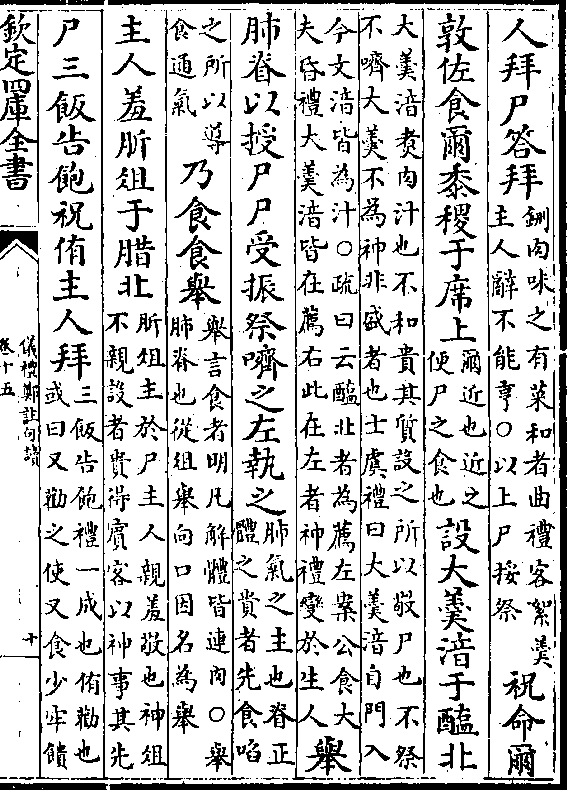 人拜尸答拜鉶肉味之有菜和者曲禮客絮羹主人辭不能亨○以上尸挼祭祝命爾
敦佐食爾黍稷于席上爾近也近之便尸之食也設大羹湆于醢北
大羹湆煑肉汁也不和貴其質設之所以敬尸也不祭
不嚌大羹不為神非盛者也士虞禮曰大羹湆自門入
今文湆皆為汁○疏曰云醢北者為薦左案公食大
夫昏禮大羹湆皆在薦右此在左者神禮變於生人舉
肺脊以授尸尸受振祭嚌之左執之肺氣之主也脊正體之貴者先食啗
之所以導食通氣乃食食舉舉言食者明凡解體皆連肉○舉肺脊也從俎舉向口因名為舉
主人羞肵俎于腊北肵俎主於尸主人親羞敬也神俎不親設者貴得賓客以神事其先
尸三飯告飽祝侑主人拜三飯告飽禮一成也侑勸也或曰又勸之使又食少牢饋
欽定四庫全書
儀禮鄭註句讀
卷十五
十